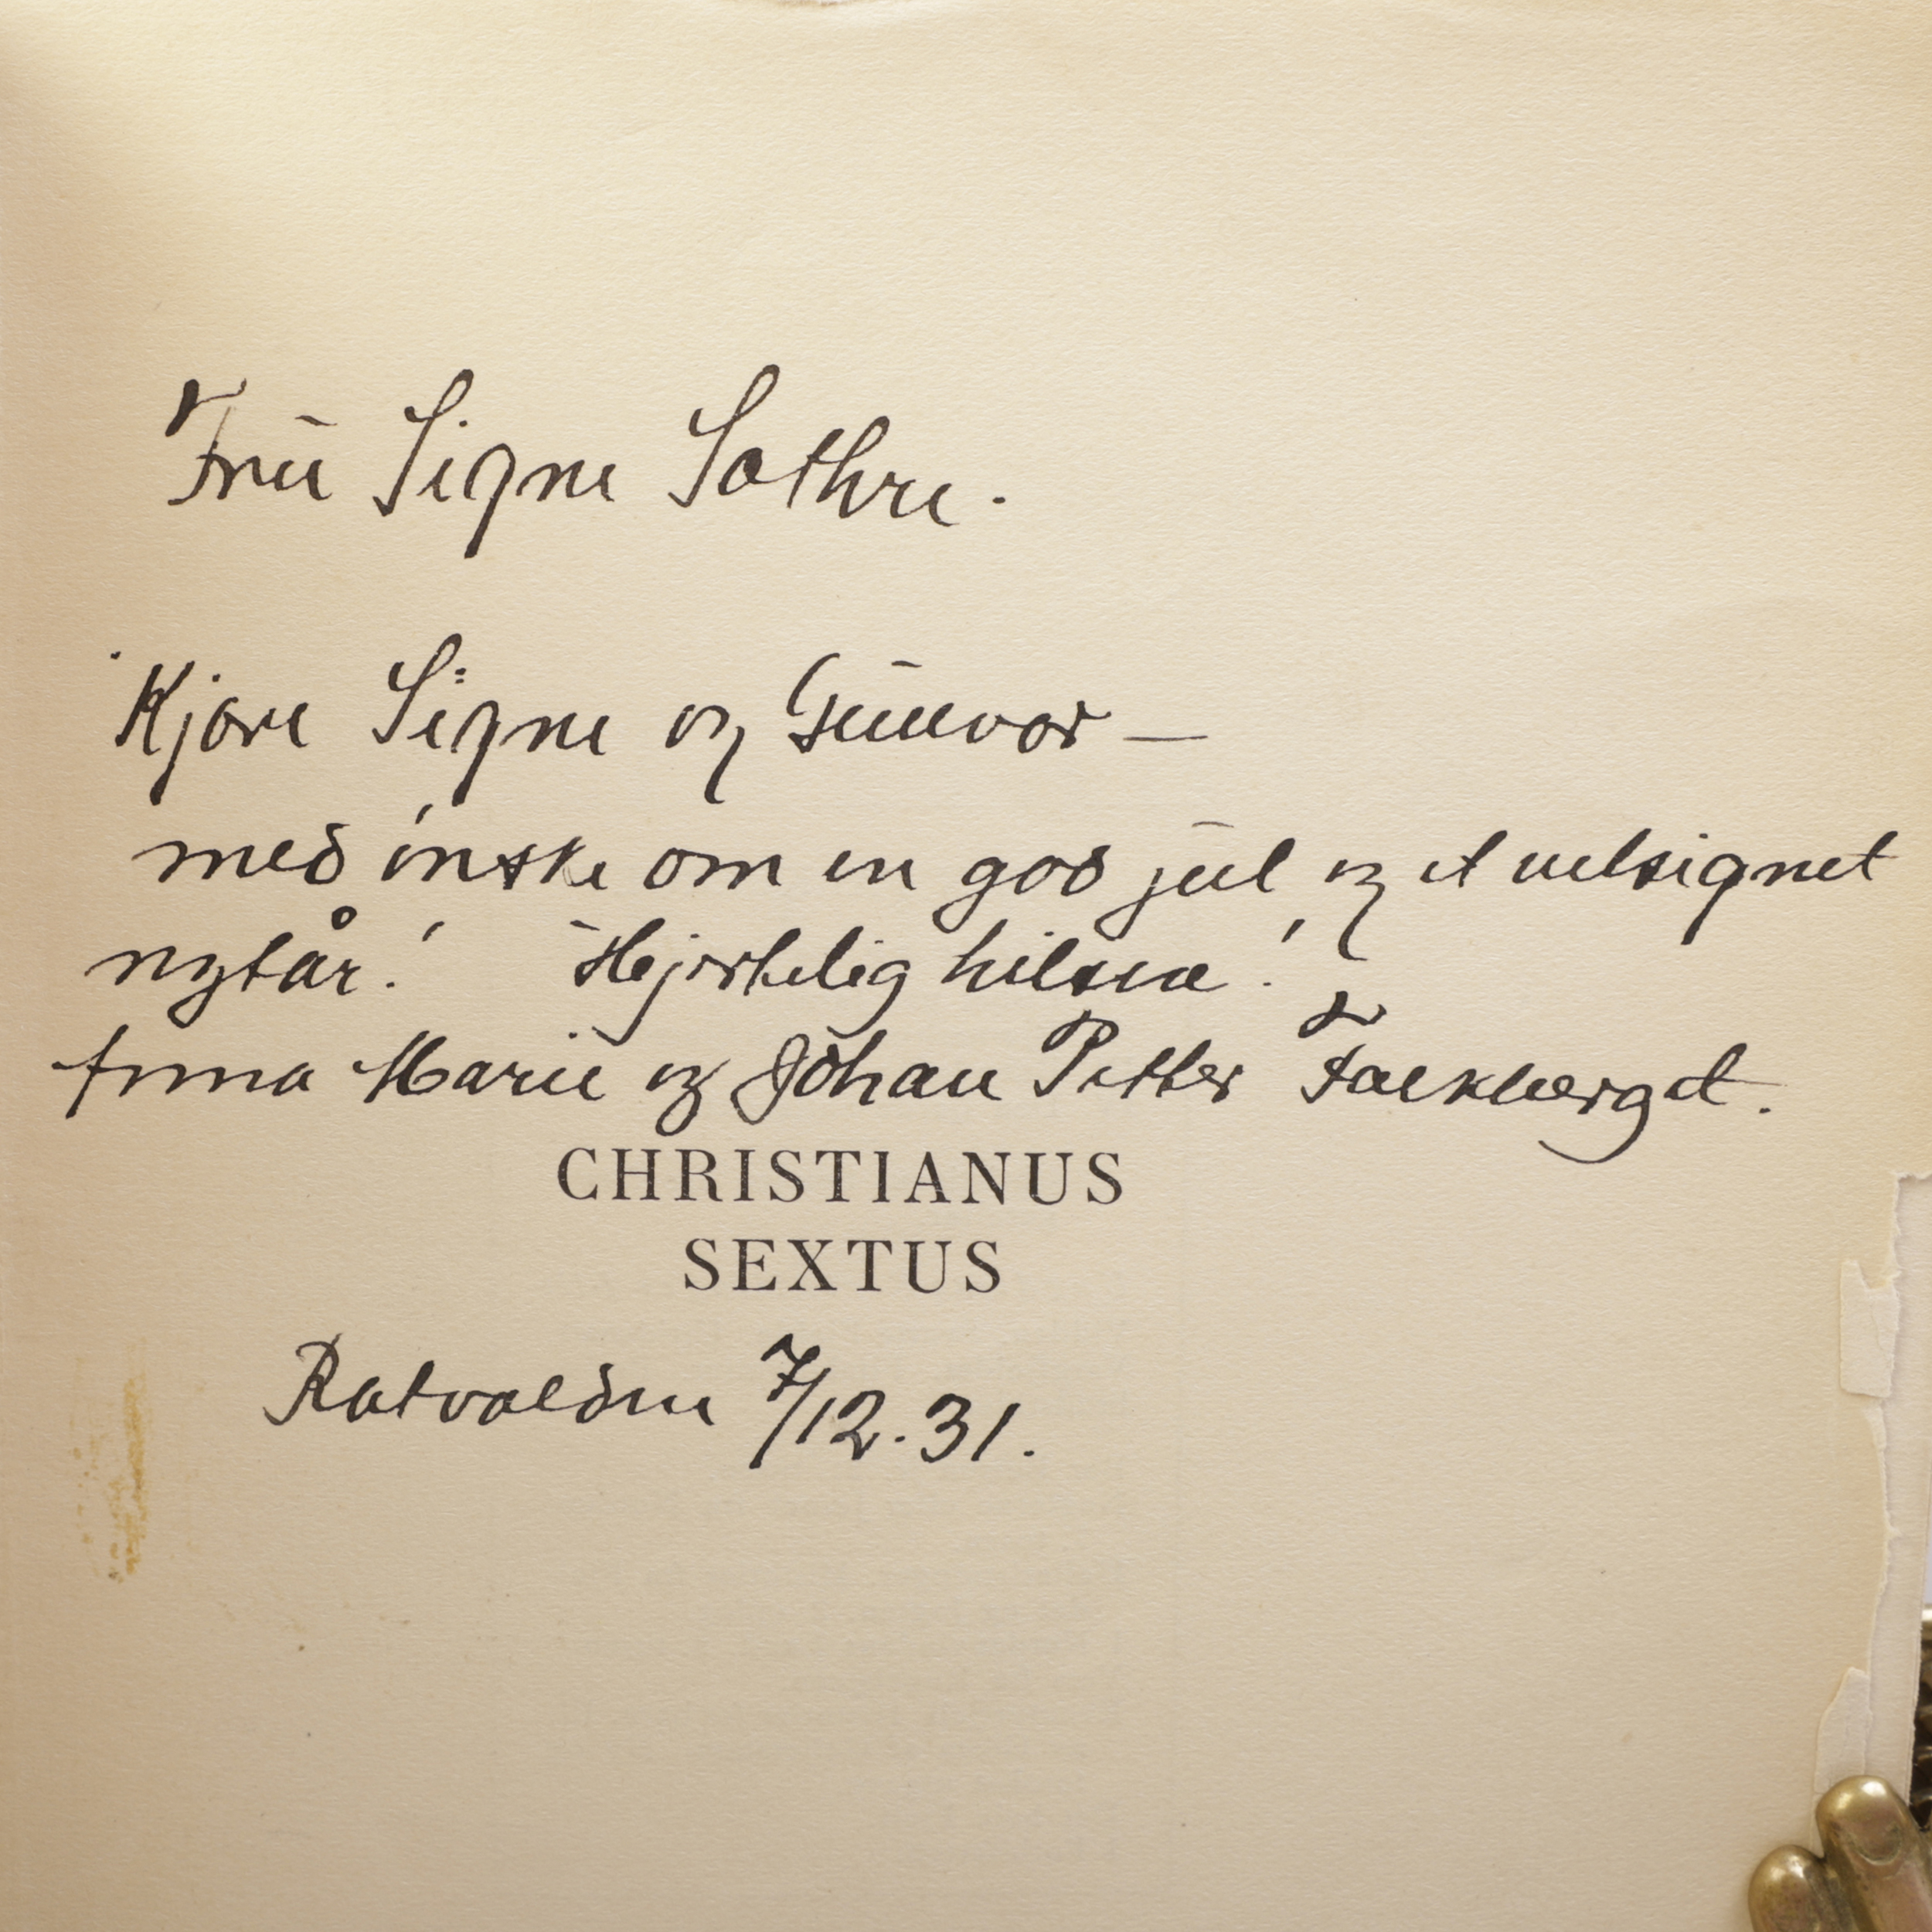 Fru Signe Sæthre.
Kjære Signe og Gunvor —
med ønske om en god jul og et velsignet
nytår! Hjertelig hilsen!
Anna Marie og Johan Petter Falkberget.
CHRISTIANUS
SEXTUS
Ratvolden 7/12.31.